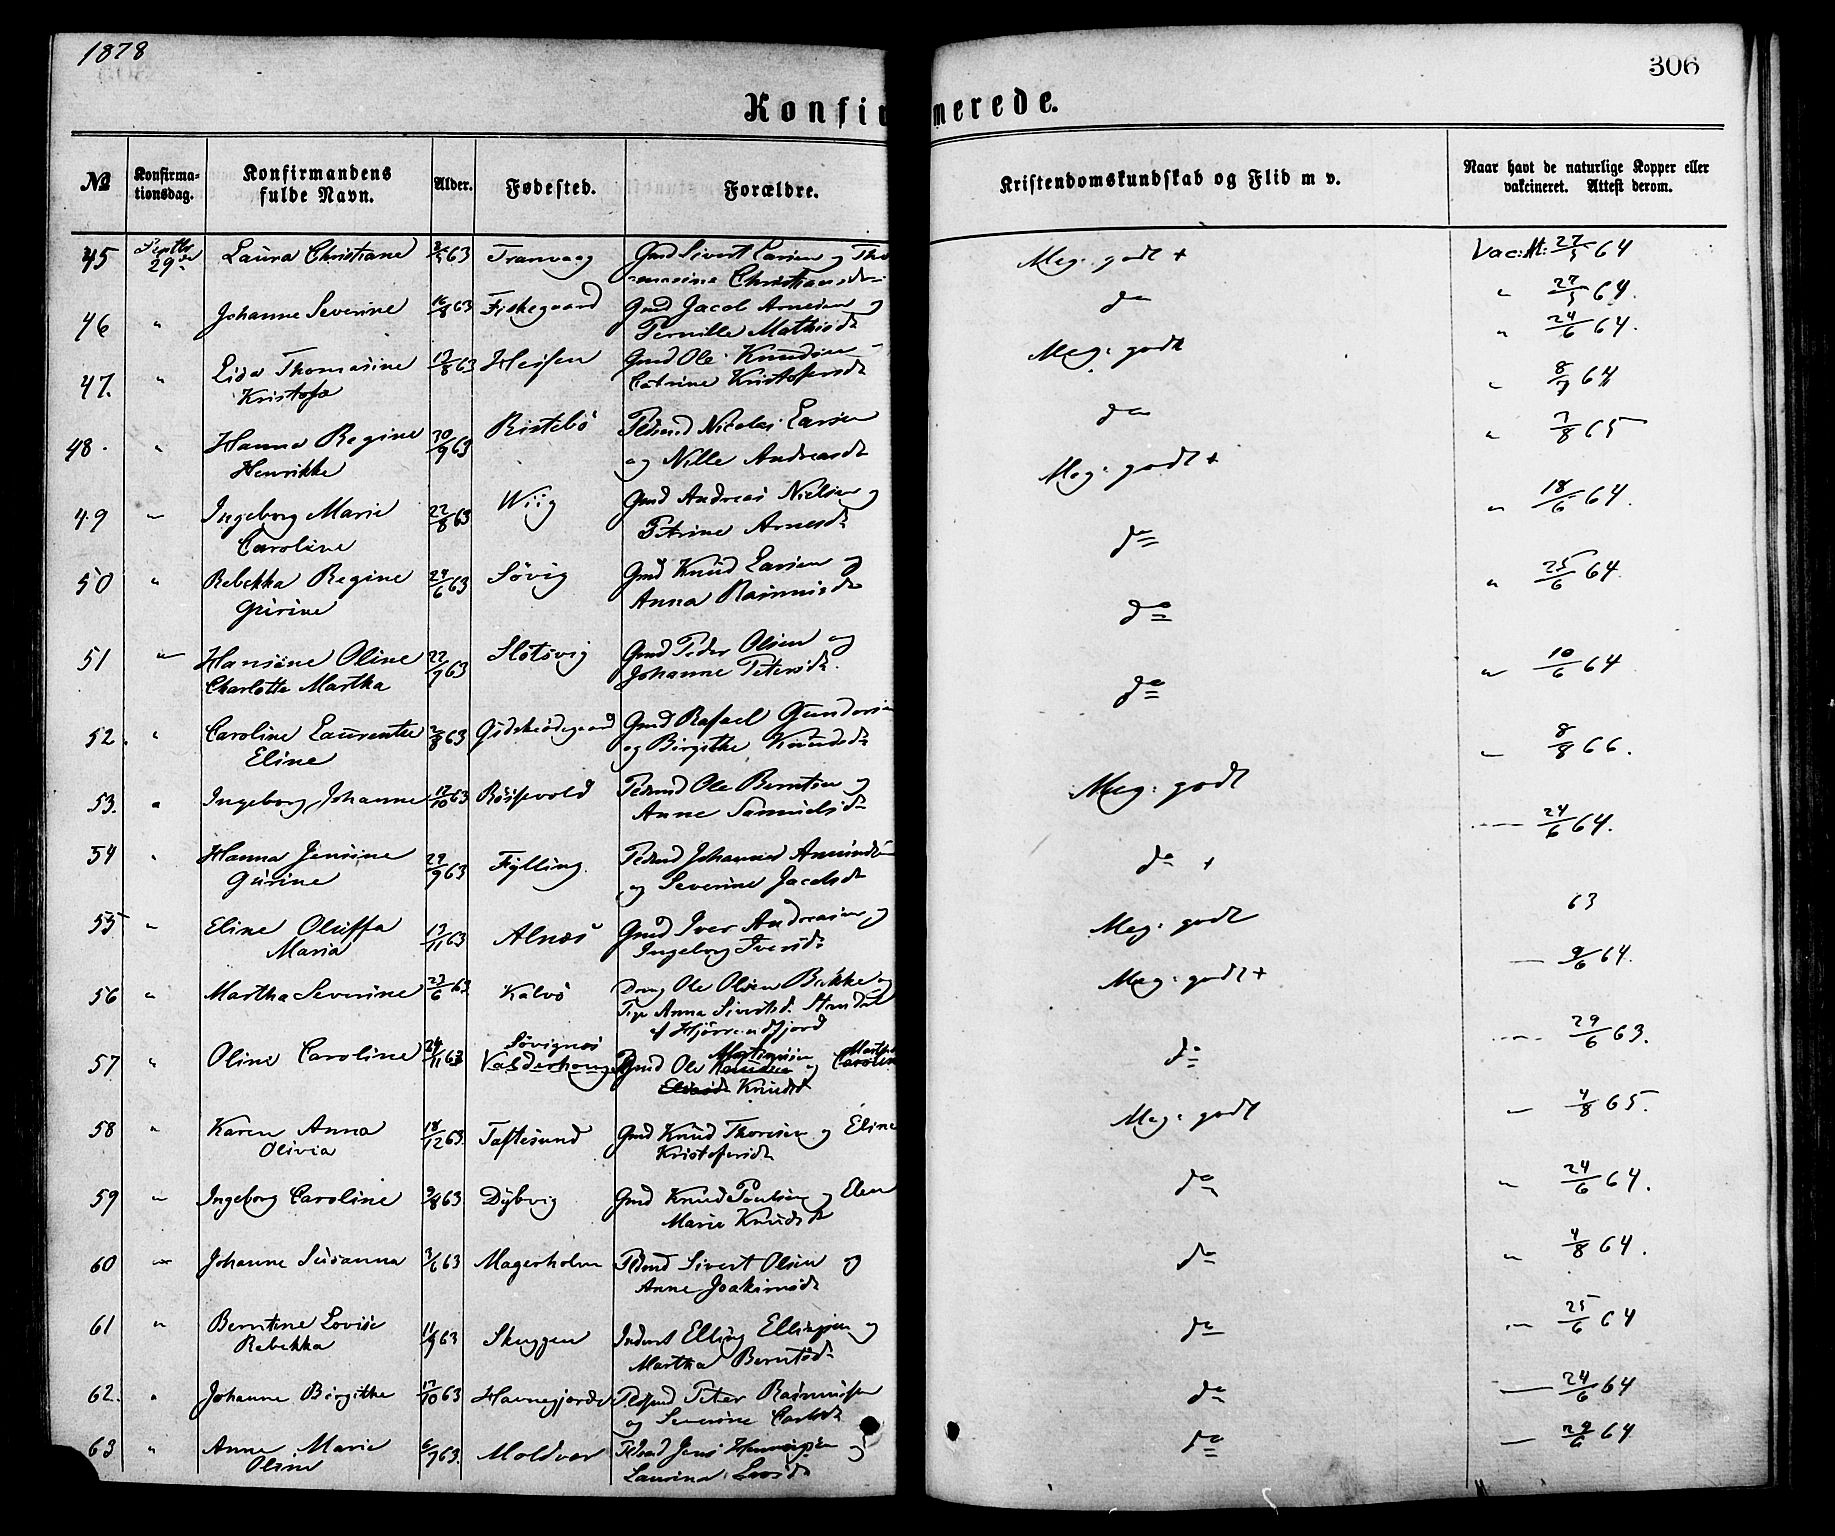 1878
306
Konfirmerede.
№
Konfirma-
tionsdag.
Konfirmandens
fulde Navn.
Alder.
Fødested.
Forældre.
Kristendomskundskab og Flid m v.
Naar havt de naturlige Kopper eller
vakcineret. Attest derom.
45 Septbr 29 Laura Christiane 63 Tranvaag Gmd Sivert Larsen og Tho
masine Christiansdr Meg: godt + Vac: At: 27/5 64
46 " Johanne Severine 16/8 63 Fiskegaard Gmd Jacob Arnesen og
Pernille Mathisdr do " 27/5 64.
47. " Lisa Thomasine 19/8 63 Hessen Gmd Ole Knudsen
Kristofa Catrine Kristofersdr Meg: godt " 24/6 64.
48. " Hanna Regine 30/9 63 Ristebö Pldmd Nicolai Larsen
Henrikke og Nille Andreasdr do " 8/7 64
49 " Ingeborg Marie 22/8 63 Wiig Gmd Andreas Nielsen og
Caroline Petrine Arnesdr Meg: godt + " 7/8 65
50 " Rebekka Regine 24/6 63 Søvig Gmd Knud Larsen og
Gurine Anna Rasmusdr do " 18/6 64.
51 " Hansine Oline 22/9 63 Slotsvig Gmd Peder Olsen og
Charlotte Martha Johanne Petersdr. do " 25/6 64.
52. " Caroline Laurentse 63 Gjöskeödegaard Gmd Rafael Gundersen
Eline og Birgithe Knudsdr do " 10/6 64
53. " Ingeborg Johanne 12/10 63 Röisevold Pldmd Ole Berntsen og
Anne Samuelsdr Meg: godt " 8/8 66.
54 " Hanna Jensine 29/9 63 Fylling. Pldmd Johannes Amundsen
Gurine og Severine Jacobsdr do + 24/6 64.
55 " Eline Oluffa 13/11 63 Alnæs Gmd Iver Andreasen og
Maria Ingeborg Iversdr Meg: godt 63
56 " Martha Severine 23/6 63. Kalvö Dreng Ole Olsen Bakke og
Pige Anna Sivertsd. Standal
af Hjörrendfjord Meg: godt + 9/6 64.
57 " Oline Caroline 24/11 63 Sövignæs
Valderhoug Gmd Ole Martinusen Knudsen og Martha Caroline
Elisadr Knudsdr do 29/6 63.
58 " Karen Anna 18/12 63. Taftesund Gmd Knud Thoresen og Eline
Olivia Kristofersdr Meg: godt " 4/8 65.
59 " Ingeborg Caroline 9/8 63 Dybvig Gmd Knud Poulsen og Elen
Marie Knudsdr do " 24/6 64.
60 " Johanne Susanna 3/6 63 Magerholm Pldmd Sivert Olsen og
Anne Joakimsdr do " 4/8 64.
61 " Berntine Lovise 11/9 63 Skuggen Inderst Elling Ellingsen og
Rebekka Martha Berntsdr do " 25/6 64
62. " Johanne Birgithe 12/10 63 Havnegjærde Pldsmd Peter Rasmussen
og Severine Carlsdr do 24/6 64
63 " Anne Marie 6/9 63. Moldvær Pldmd Jens Henningsen og
Oline Laurina Larsdr do 29/6 64